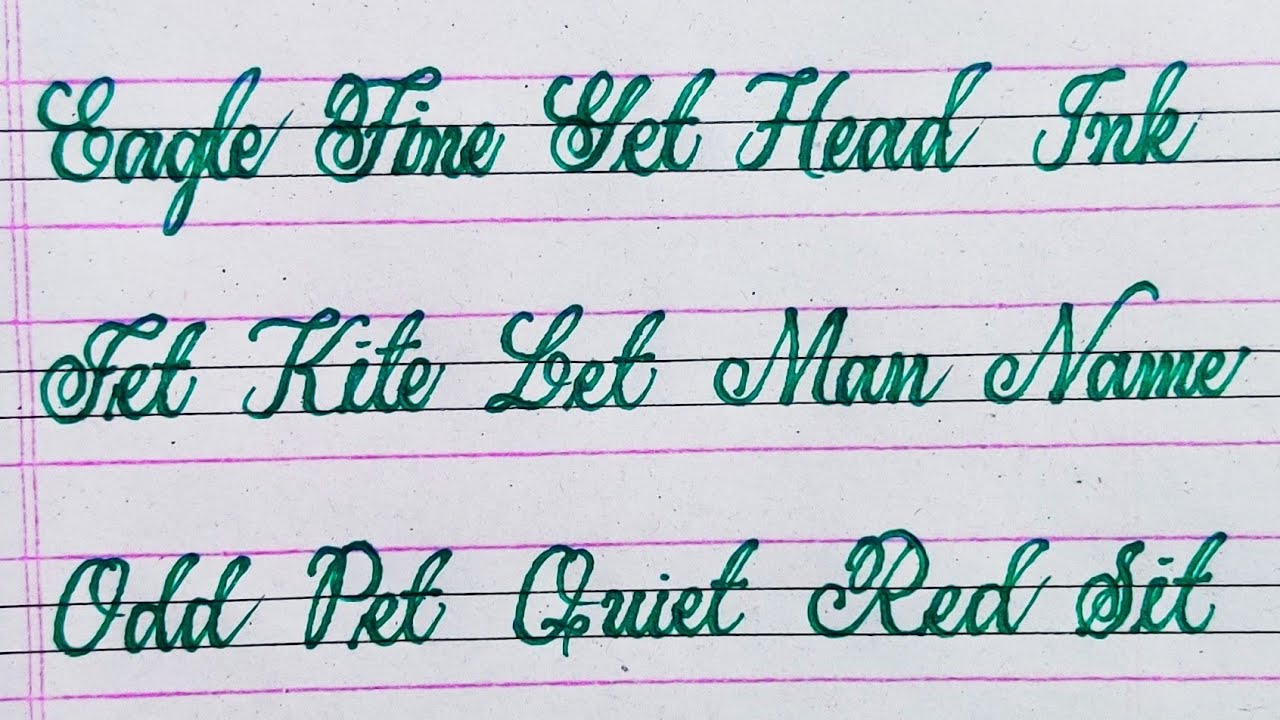 Eagle Fine Get Head Ink
Jet Kite Let Man Name
Odd Pet Quiet Red Sit